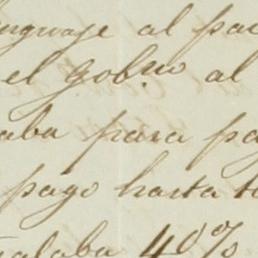 lenguaje al pa
el gobno al
aba para pa
pago hasta t
alaba 40%